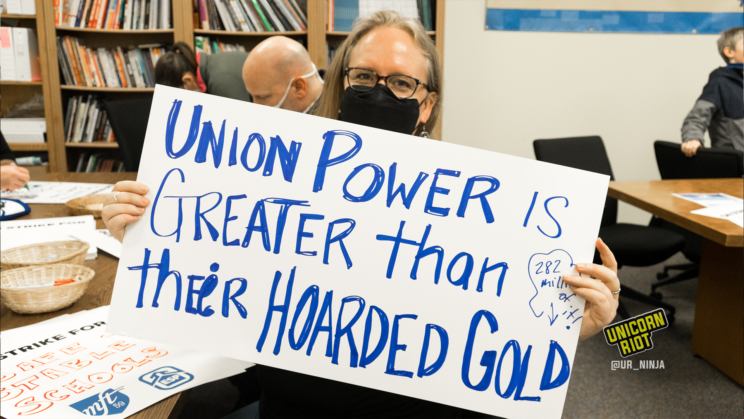 UNION POWER IS
GREATER than
their HOARDED GOLD
282
mill
of
it!
STRIKE FOR
SAFE
STABLE
SCHOOLS
mft
59
UNICORN
RIOT
@UR_NINJA